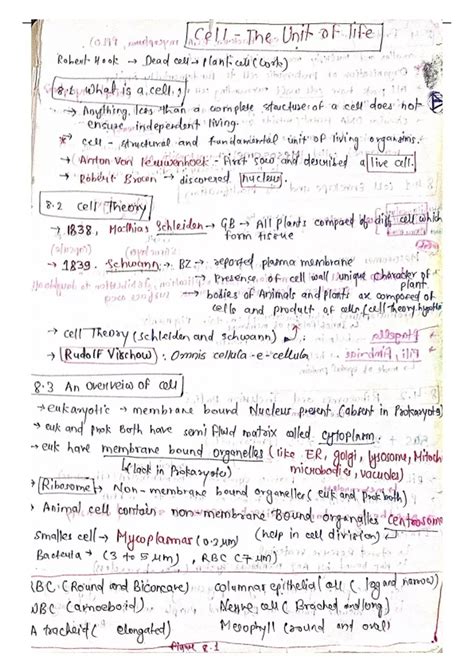 Cell - The Unit of life
Robert Hook → Dead cell → Plant cell (Cork)
8.1 What is a cell ?
→ Anything less than a complete structure of a cell does not
ensure independent living.
* cell - structural and fundamental unit of living organisms.
→ Anton Von Leuwenhoek - First saw and described a live cell.
→ Robert Brown → discovered nucleus.
8.2 Cell Theory
→ 1838, Mathias Schleiden → GB → All Plants compaed of diff cell which
form tissue
→ 1839. Schwann → BZ → reported plasma membrane
→ Presence of cell wall unique character of
plant.
→ bodies of Animals and plants are composed of
cells and product of cells. (cell theory hypoth
→ cell Theory (Schleiden and Schwann)
→ Rudolf Virchow : Omnis cellula-e-cellula
8.3 An overveiw of cell
→ eukaryotic → membrane bound Nucleus present (absent in Prokaryote)
→ euk and Prok Both have semi fluid matrix called cytoplasm.
→ euk have membrane bound organelles (like ER, golgi, lysosome, Mitoch
(lack in Prokaryote) microbodies, vacuoles)
→ Ribosome → Non-membrane bound organelles (euk and prok both)
→ Animal cell contain non-membrane Bound organalles centrosome
Smalles cell → Mycoplasmas (0.2 μm) (help in cell division)
Bacteria → (3 to 5 μm) , RBC (7 μm)
RBC (Round and Biconcave) columnar epithelial cell (long and narrow)
WBC (amoeboid) Nerve cell (Branched and long)
A tracheid ( elongated) Mesophyll (round and oval)
Figure 8.1